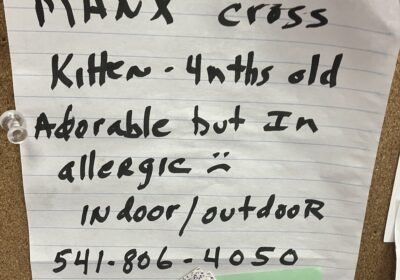 MANX cross
Kitten - 4mths old
Adorable but In
allergic ☹
INdoor/outdooR
541-806-4050